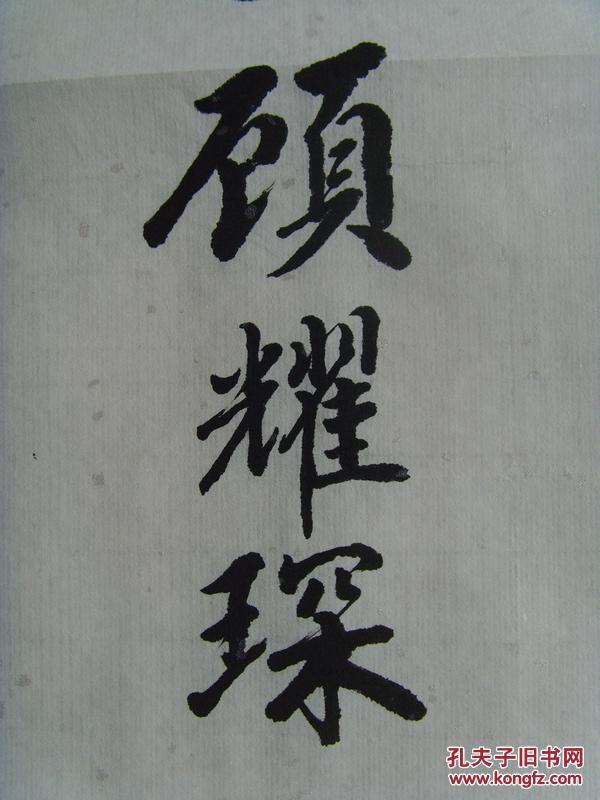 顾耀琛
孔夫子旧书网
www.kongfz.com